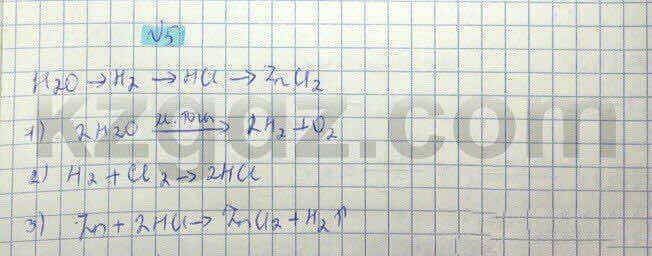 √5
H2O → H2 → HCl → ZnCl2
1) 2H2O эл.ток → 2H2 + O2
2) H2 + Cl2 → 2HCl
3) Zn + 2HCl → ZnCl2 + H2↑
kzgdz.com